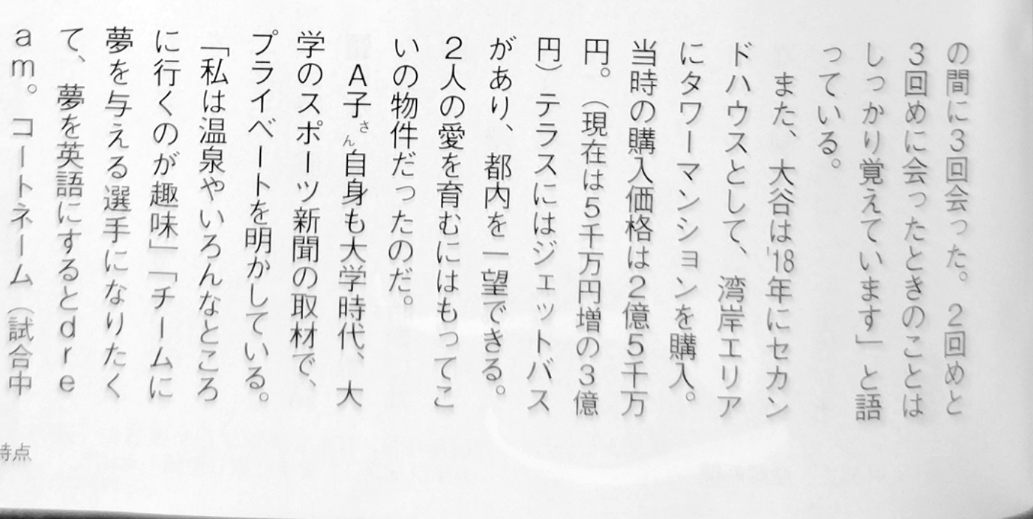 の間に３回会った。２回めと
３回めに会ったときのことは
しっかり覚えています」と語
っている。
また、大谷は'18年にセカン
ドハウスとして、湾岸エリア
にタワーマンションを購入。
当時の購入価格は２億５千万
円。（現在は５千万円増の３億
円）テラスにはジェットバス
があり、都内を一望できる。
２人の愛を育むにはもってこ
いの物件だったのだ。
Ａ子さん自身も大学時代、大
学のスポーツ新聞の取材で、
プライベートを明かしている。
「私は温泉やいろんなところ
に行くのが趣味」「チームに
夢を与える選手になりたく
て、夢を英語にするとｄｒｅ
ａｍ。コートネーム（試合中
時点